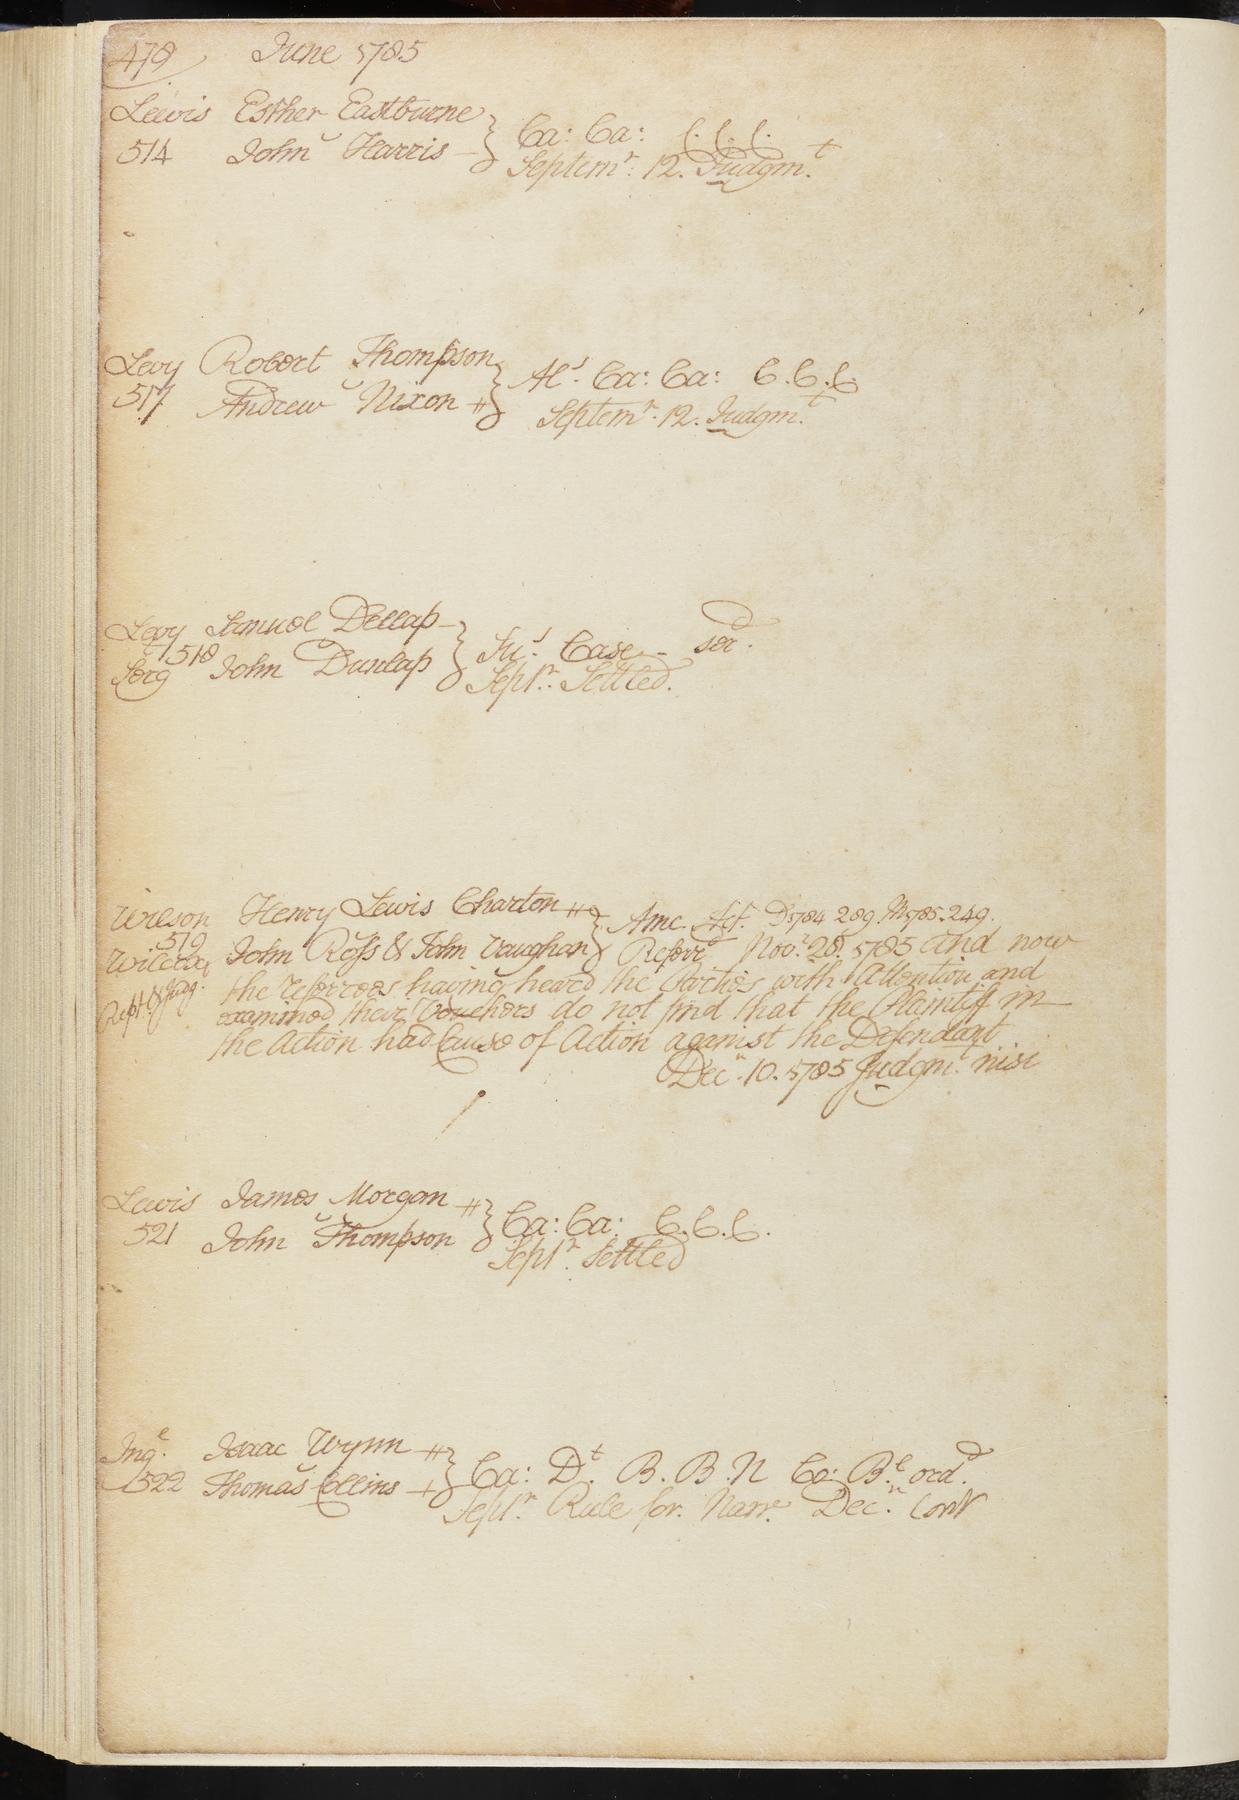 478 June 1785
Lewis Esther Eastburne
514 John Harris } Ca: Ca: C. C. C.
Septemr: 12. Judgmt.
Levy Robert Thompson
517 Andrew Nixon } Als. Ca: Ca: C. C. C.
Septemr. 12. Judgmt.
Levy Samuel Dellap
518
Serg John Dunlap } Su: Case serd.
Septr. Settled.
Wilson Henry Lewis Charton } Amc. Act. D1784 289. M1785. 249.
519
Wilcocks John Ross & John Vaughan } Referrd Novr. 28. 1785 and now
the referrees having heard the Parties with Attention and
Rept. & Judg. examined their Vouchers do not find that the Plaintiff in
the Action had Cause of Action against the Defendant
Decr. 10. 1785 Judgmt. nisi
Lewis James Morgan
521 John Thompson } Ca: Ca: C. C. C.
Septr. Settled
Inge. Isaac Wynn
522 Thomas Collins } Ca: Dt. B. B. N Co: Be. ord.
Septr. Rule for Narre. Decr. Cont